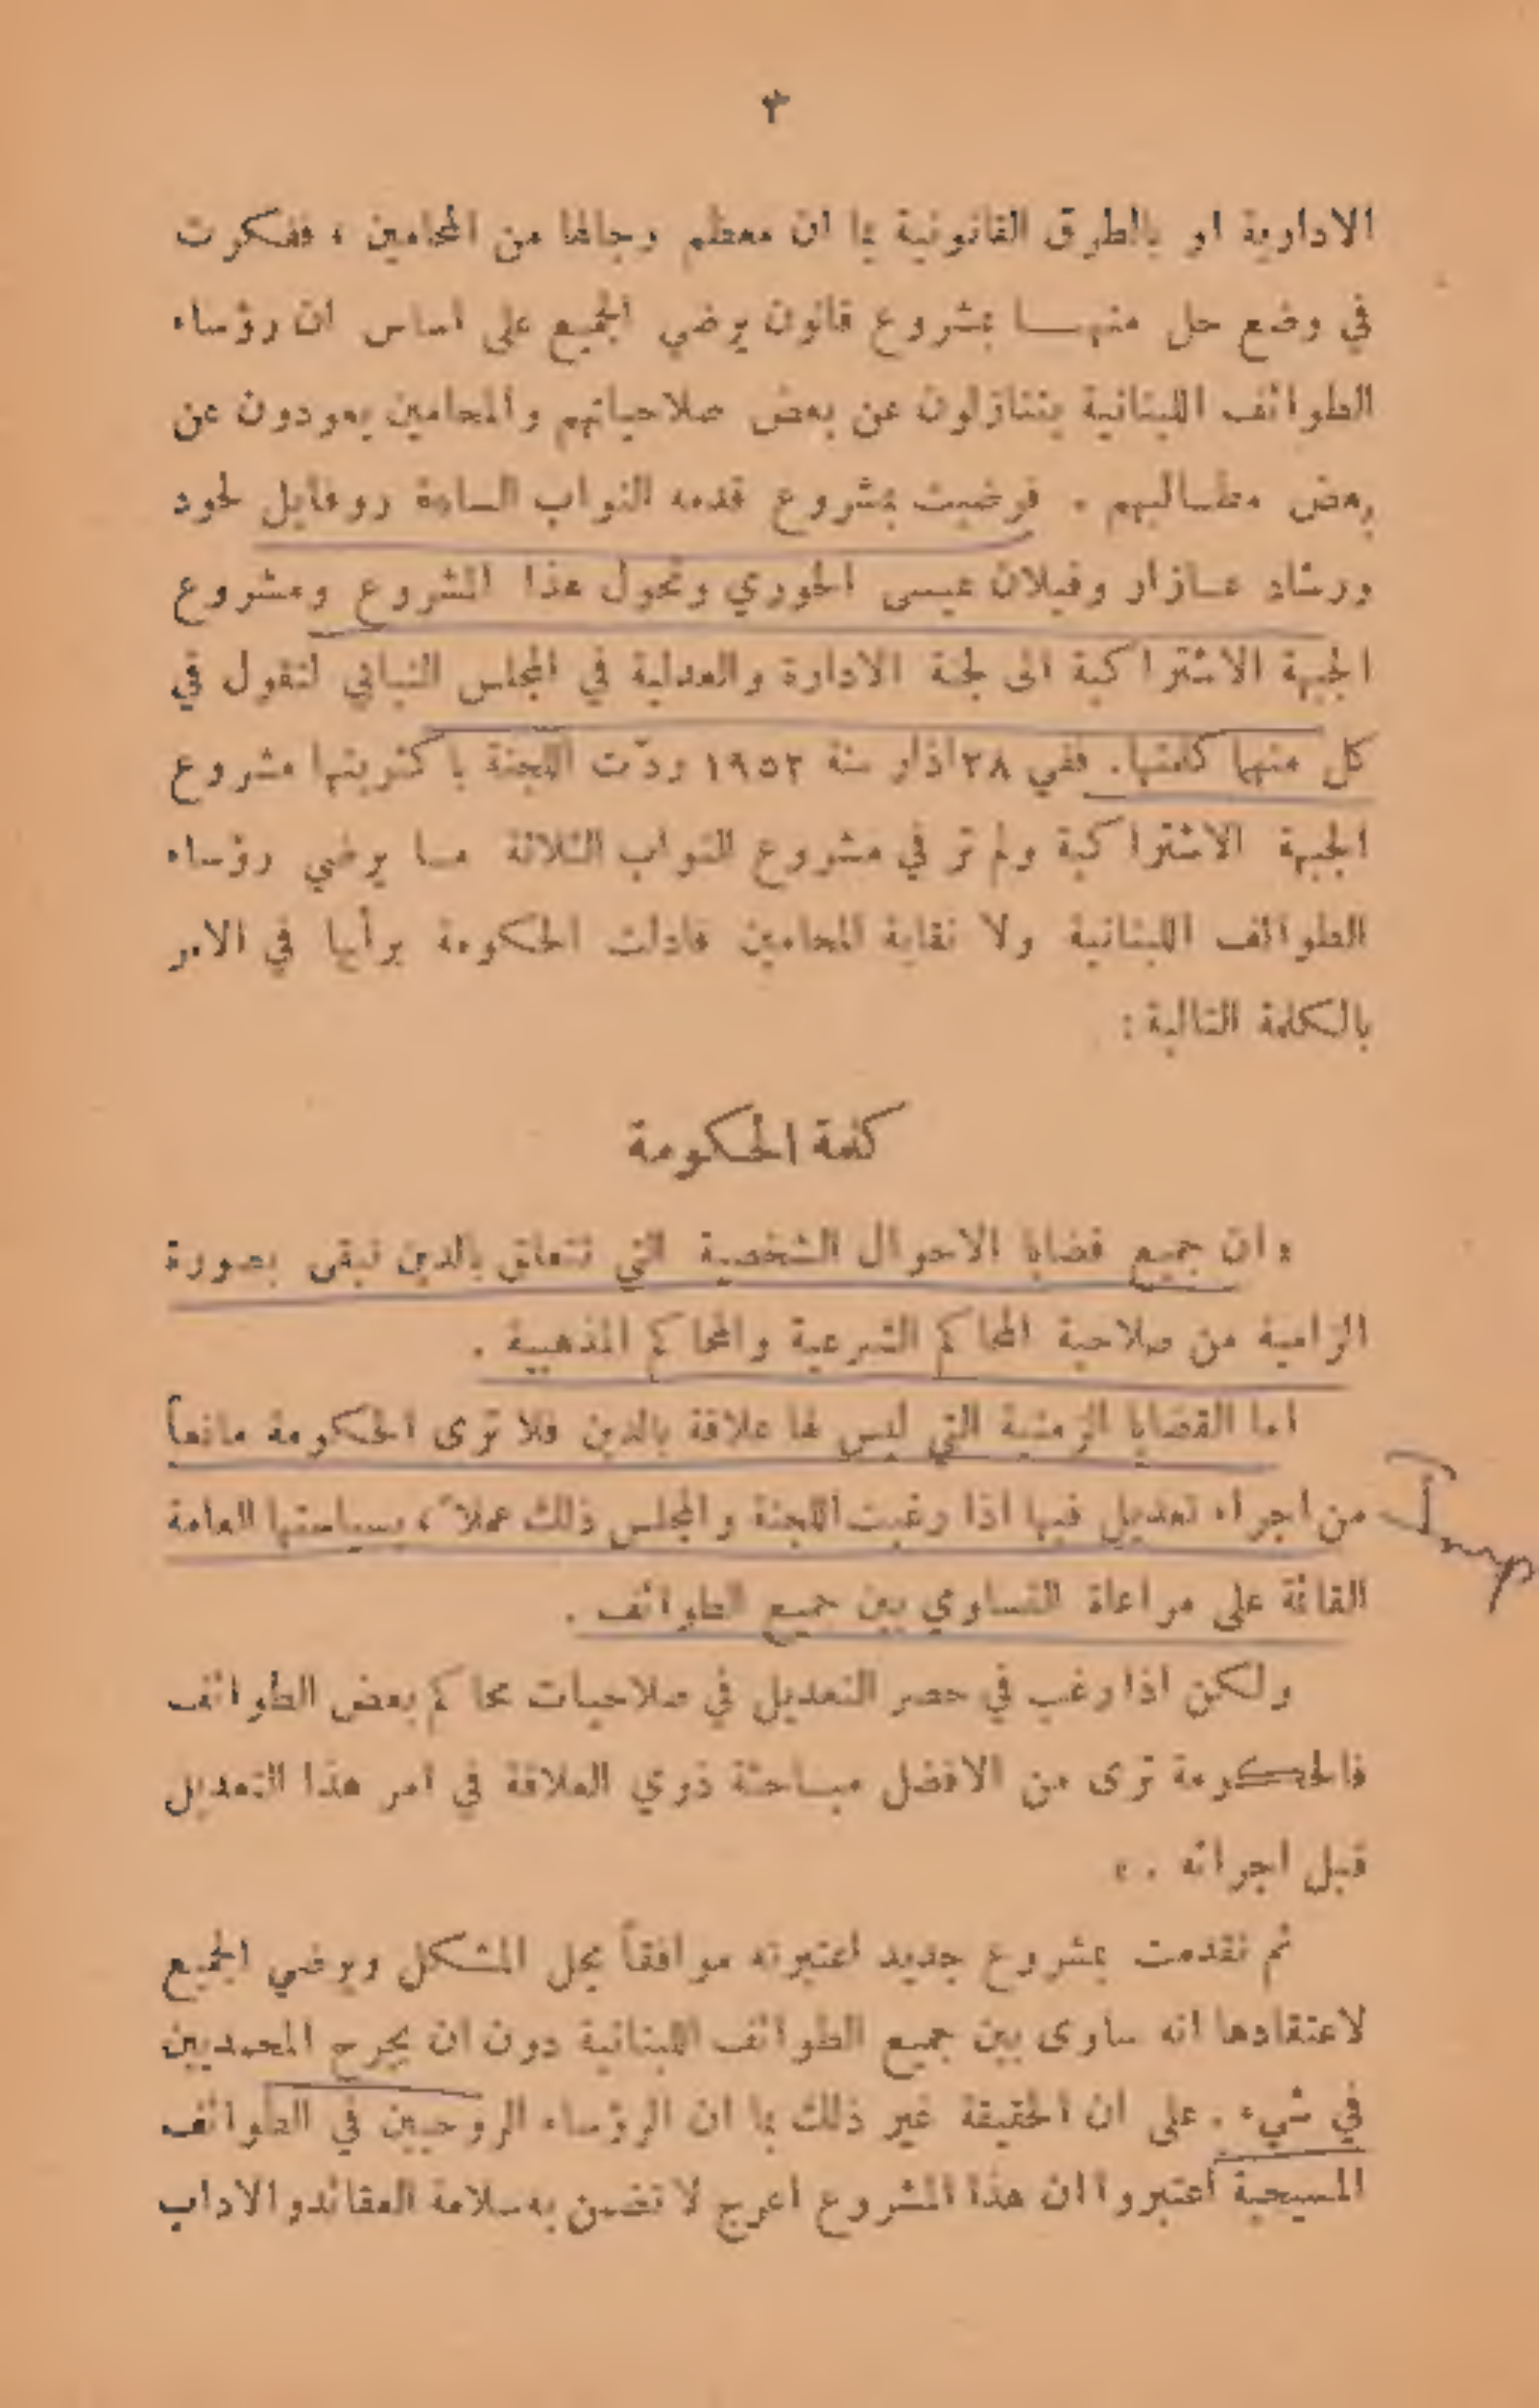 ٣
الادارية او بالطرق القانونية بما ان معظم رجالها من المحامين ، ففكرت
في وضع حل منهــا بمشروع قانون يرضي الجميع على اساس ان رؤساء
الطوائف اللبنانية يتنازلون عن بعض صلاحياتهم والمحامين يعودون عن
بعض مطـالبهم . فرضيت بمشروع قدمه النواب السادة روفايل لحود
ورشاد عـازار وفيلان عيسى الخوري وتحول هذا المشروع ومشروع
الجبهة الاشتراكية الى لجنة الادارة والعدلية في المجلس النيابي لتقول في
كل منهما كلمتها. ففي ٢٨ اذار سنة ١٩٥٢ ردّت اللجنة باكثريتها مشروع
الجبهة الاشتراكية ولم تر في مشروع النواب الثلاثة مـا يرضي رؤساء
الطوائف اللبنانية ولا نقابة المحامين فادلت الحكومة برأيها في الامر
بالكلمة التالية :
كلمة الحكومة
« ان جميع قضايا الاحوال الشخصية التي تتعلق بالدين تبقى بصورة
الزامية من صلاحية المحاكم الشرعية والمحاكم المذهبية .
اما القضايا الزمنية التي ليس لها علاقة بالدين فلا ترى الحكومة مانعاً
من اجراء تعديل فيها اذا رغبت اللجنة والمجلس ذلك عملاً ، بسياستها العامة
القائمة على مراعاة التساوي بين جميع الطوائف .
Imp
ولكن اذا رغب في حصر التعديل في صلاحيات محاكم بعض الطوائف
فالحكومة ترى من الافضل مبـاحثة ذوي العلاقة في امر هذا التعديل
قبل اجرائه . »
ثم تقدمت بمشروع جديد اعتبرته موافقاً يحل المشكل ويرضي الجميع
لاعتقادها انه ساوى بين جميع الطوائف اللبنانية دون ان يجرح المحمديين
في شيء . على ان الحقيقة غير ذلك بما ان الرؤساء الروحيين في الطوائف
المسيحية اعتبروا ان هذا المشروع اعرج لا تضمن به سلامة العقائد والاداب